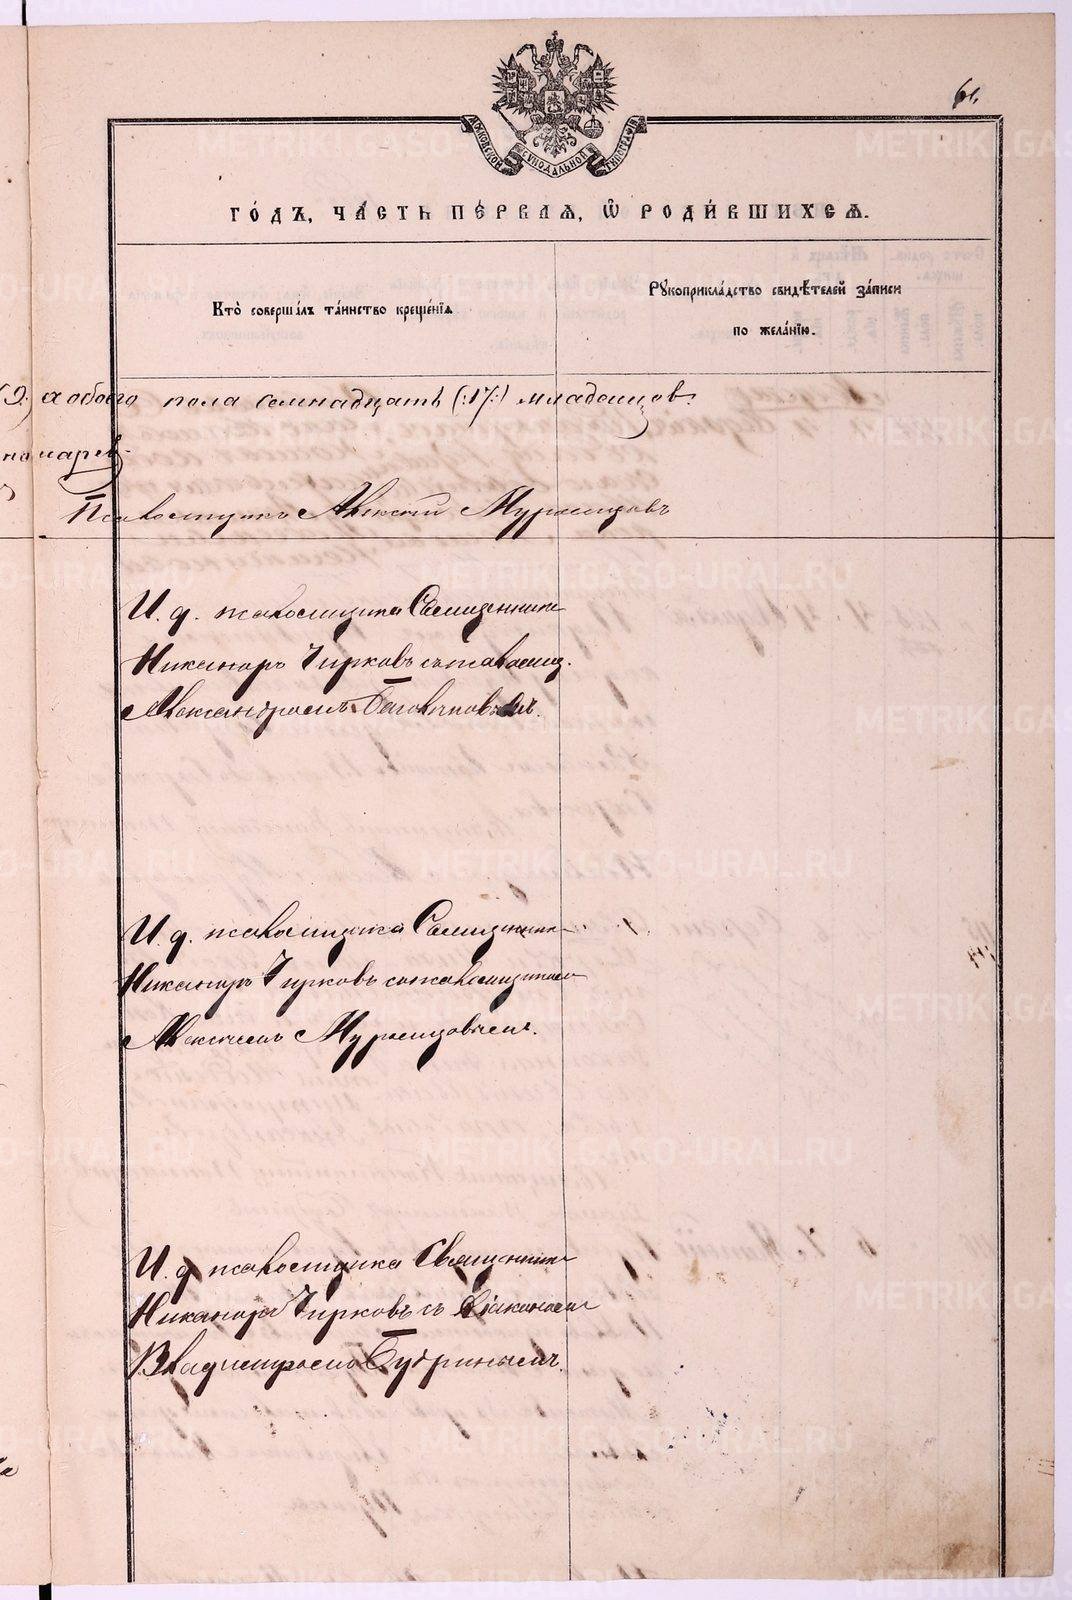 61.
МОСКОВСКОЙ СѴНОДАЛЬНОЙ ТѴПОГРАФІИ
ГО́ДЪ, ЧА́СТЬ ПЕ́РВАѦ, Ѿ РОДИ́ВШИХСѦ.
Кто̀ соверша́лъ та́инство креще́нїѧ
Рꙋкоприкла́дство свидѣ́телей за́писи
по жела́нїю.
9.) а обоего пола семнадцать (:17:) младенцов.
Псаломщикъ Алексѣй Мурзинцовъ
И. д. псаломщика Священникъ
Никаноръ Чирковъ съ псаломщ.
Александромъ
И. д. псаломщика Священникъ
Никаноръ Чирковъ съ псаломщикомъ
Алексѣемъ Мурзинцовымъ.
И. д. псаломщика Священникъ
Никаноръ Чирковъ съ Діакономъ
Владимiромъ Будринымъ.
METRIKI.GASO-URAL.RU